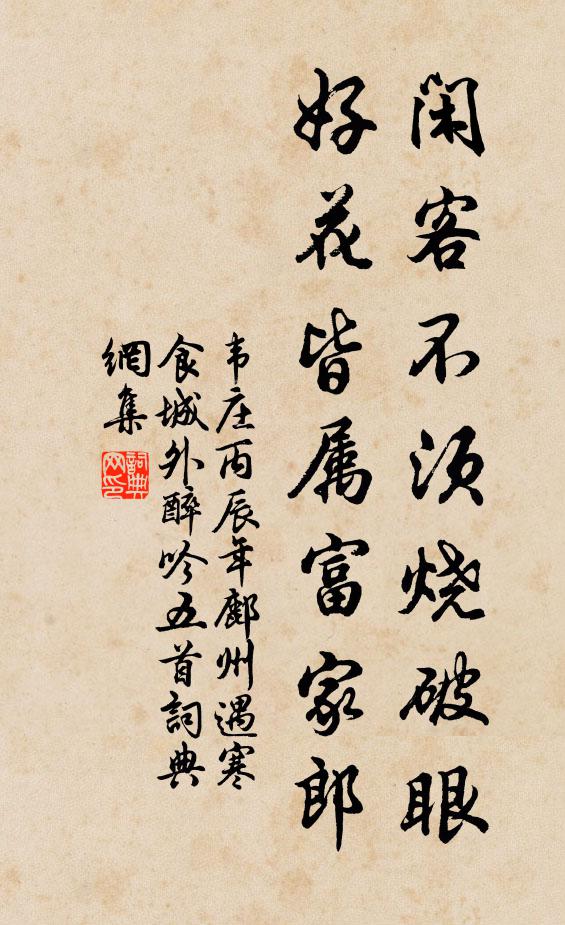 闲客不须烧破眼
好花皆属富家郎
韦庄丙辰年鄜州遇寒
食城外醉吟五首詞典
網集
詞典
网印